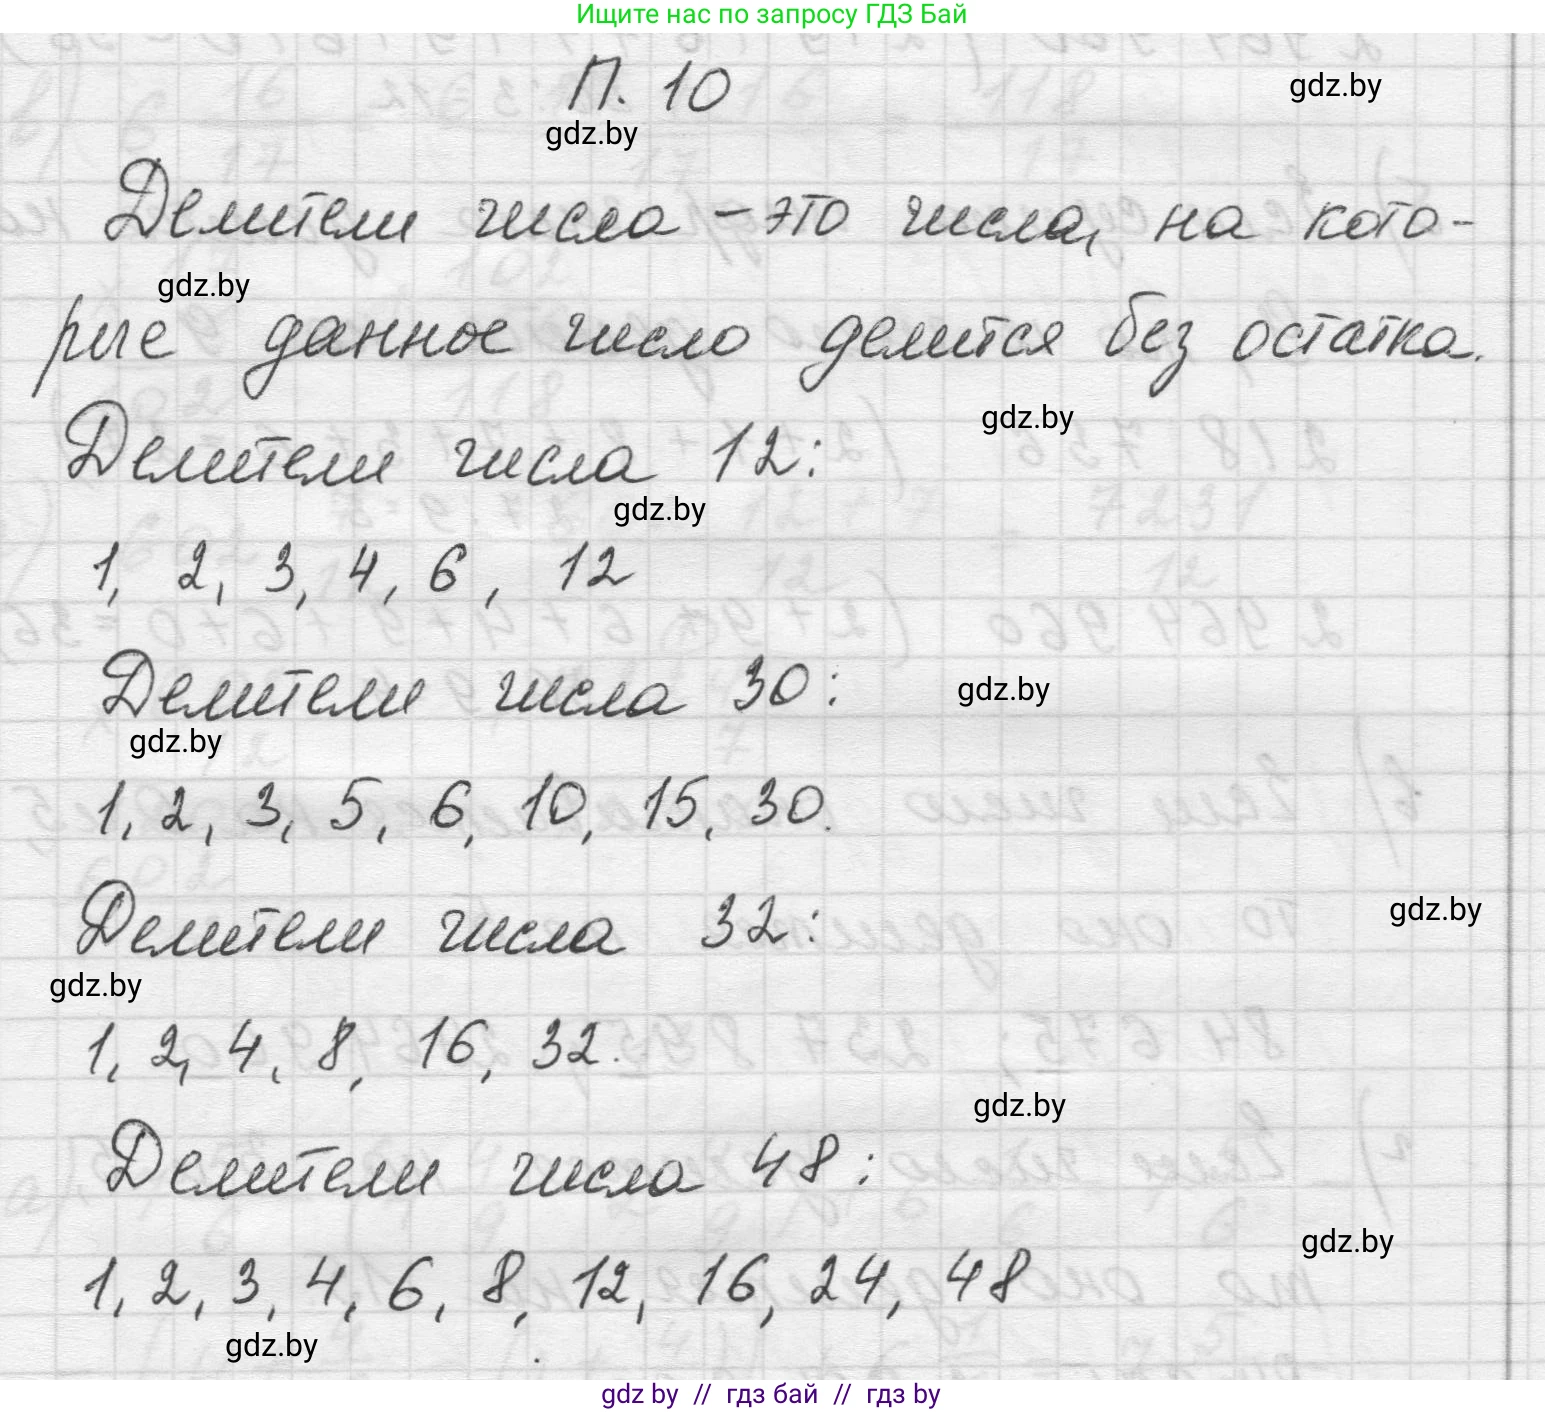 Ищите нас по запросу ГДЗ Бай
П. 10
gdz.by
gdz.by
Делители числа – это числа, на кото-
gdz.by
рые данное число делится без остатка.
gdz.by
Делители числа 12:
gdz.by
1, 2, 3, 4, 6, 12
Делители числа 30:
gdz.by
gdz.by
1, 2, 3, 5, 6, 10, 15, 30.
Делители числа 32:
gdz.by
gdz.by
1, 2, 4, 8, 16, 32.
gdz.by
Делители числа 48:
gdz.by
1, 2, 3, 4, 6, 8, 12, 16, 24, 48
gdz.by
gdz by // гдз бай // гдз by